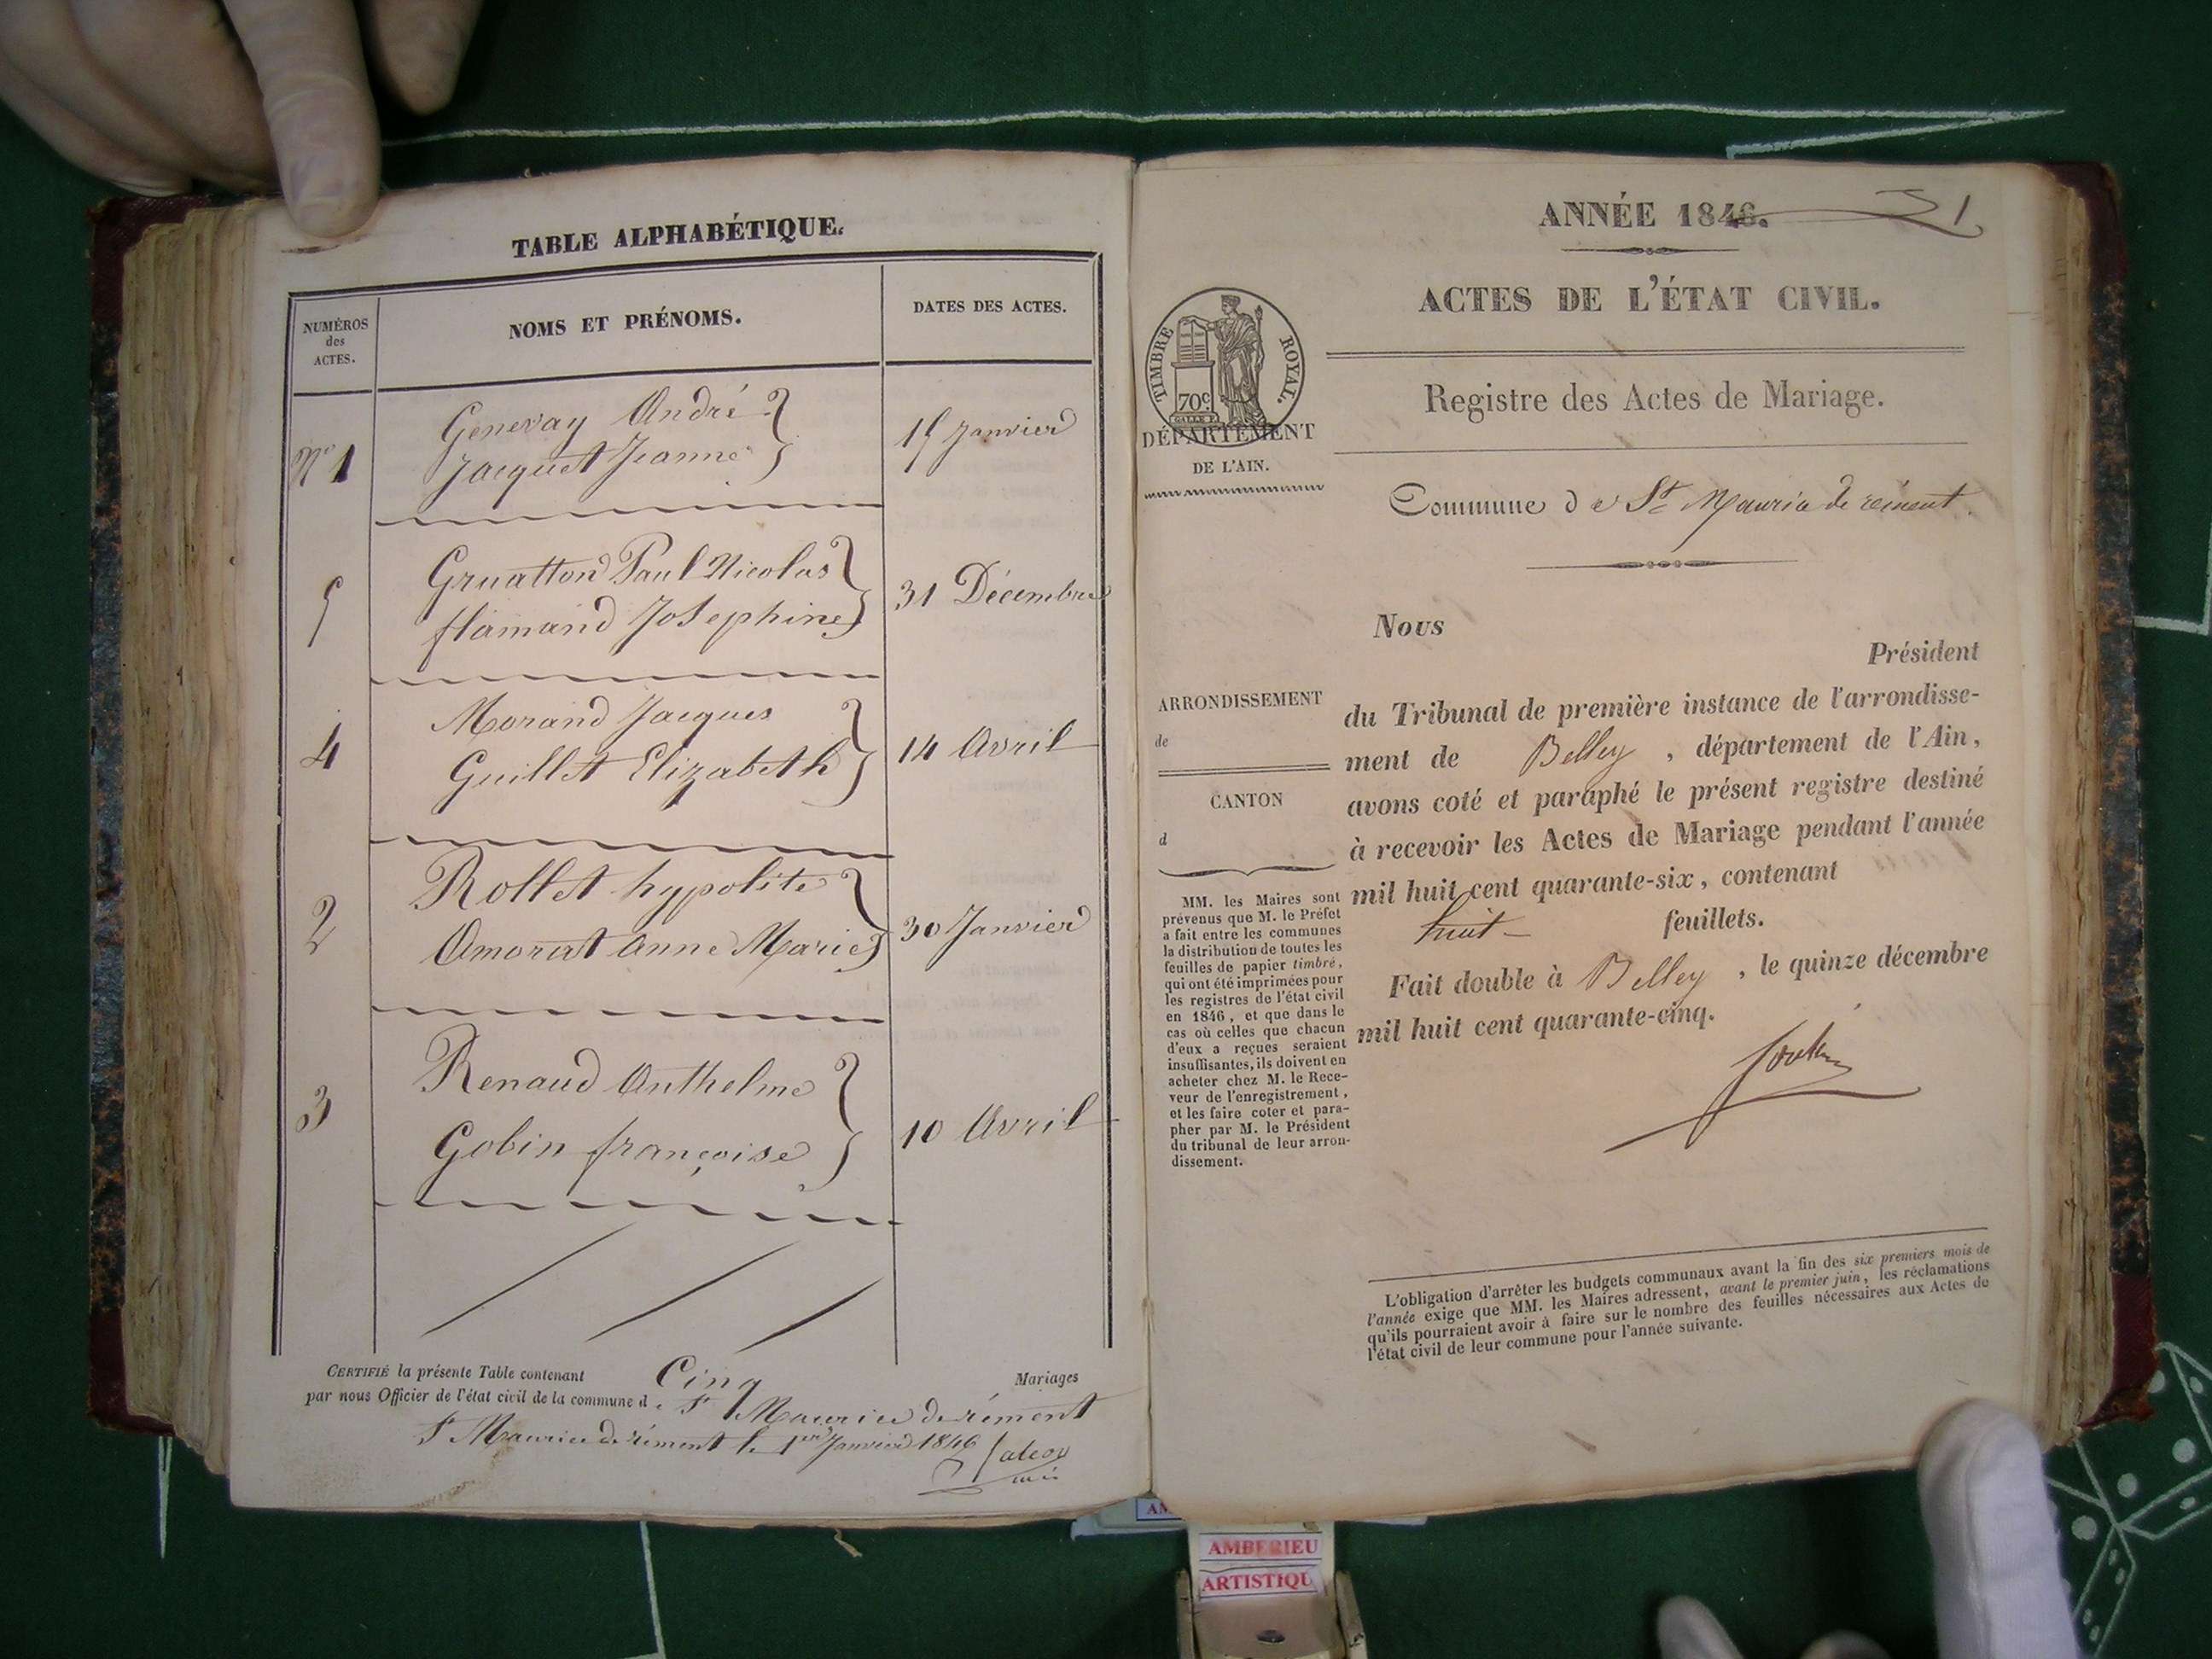 TABLE ALPHABÉTIQUE.
NUMÉROS
des
ACTES.
NOMS ET PRÉNOMS.
DATES DES ACTES.
N° 1
Genevay André
Jacquet Jeanne
15 Janvier
5
Gruatton Paul Nicolas
flamand Josephine
31 Décembre
4
Morand Jacques
Guillet Elizabeth
14 Avril
2
Rollet hypolite
Amorat Anne Marie
30 Janvier
3
Renaud Anthelme
Gobin françoise
10 Avril
CERTIFIÉ la présente Table contenant Cinq Mariages
par nous Officier de l'état civil de la commune d e St Maurice de rément
St Maurice de rément le 1er Janvier 1846
ANNÉE 1846. 21
ACTES DE L'ÉTAT CIVIL.
TIMBRE ROYAL.
70c
Registre des Actes de Mariage.
DÉPARTEMENT
DE L'AIN.
Commune de St Maurice de rément.
Nous
Président
ARRONDISSEMENT
de
CANTON
d
du Tribunal de première instance de l'arrondisse-
ment de Belley, département de l'Ain,
avons coté et paraphé le présent registre destiné
à recevoir les Actes de Mariage pendant l'année
mil huit cent quarante-six, contenant
huit feuillets.
Fait double à Belley, le quinze décembre
mil huit cent quarante-cinq.
MM. les Maires sont
prévenus que M. le Préfet
a fait entre les communes
la distribution de toutes les
feuilles de papier timbré,
qui ont été imprimées pour
les registres de l'état civil
en 1846, et que dans le
cas où celles que chacun
d'eux a reçues seraient
insuffisantes, ils doivent en
acheter chez M. le Rece-
veur de l'enregistrement,
et les faire coter et para-
pher par M. le Président
du tribunal de leur arron-
dissement.
L'obligation d'arrêter les budgets communaux avant la fin des six premiers mois de
l'année exige que MM. les Maires adressent, avant le premier juin, les réclamations
qu'ils pourraient avoir à faire sur le nombre des feuilles nécessaires aux Actes de
l'état civil de leur commune pour l'année suivante.
AMBERIEU
ARTISTIQU